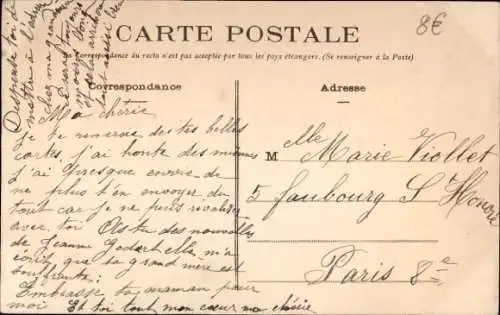 CARTE POSTALE
8€
La Correspondance du recto n'est pas acceptée par tous les pays étrangers. (Se renseigner à la Poste)
Correspondance
Adresse
Ma chérie
Je te remercie des tes belles
cartes, j'ai honte des miennes
j'ai presque envie de
ne plus t'en envoyer du
tout car je ne puis rivaliser
avec toi As tu des nouvelles
de Jeanne Godart elle m'a
écrit que ta grand mère est
souffrante:
Embrasse ta maman pour
moi Et toi tout mon cœur ma chérie
Melle Marie Viollet
5 faubourg St Honoré
Paris 8e
mettre à l'adresse
chez ma grand